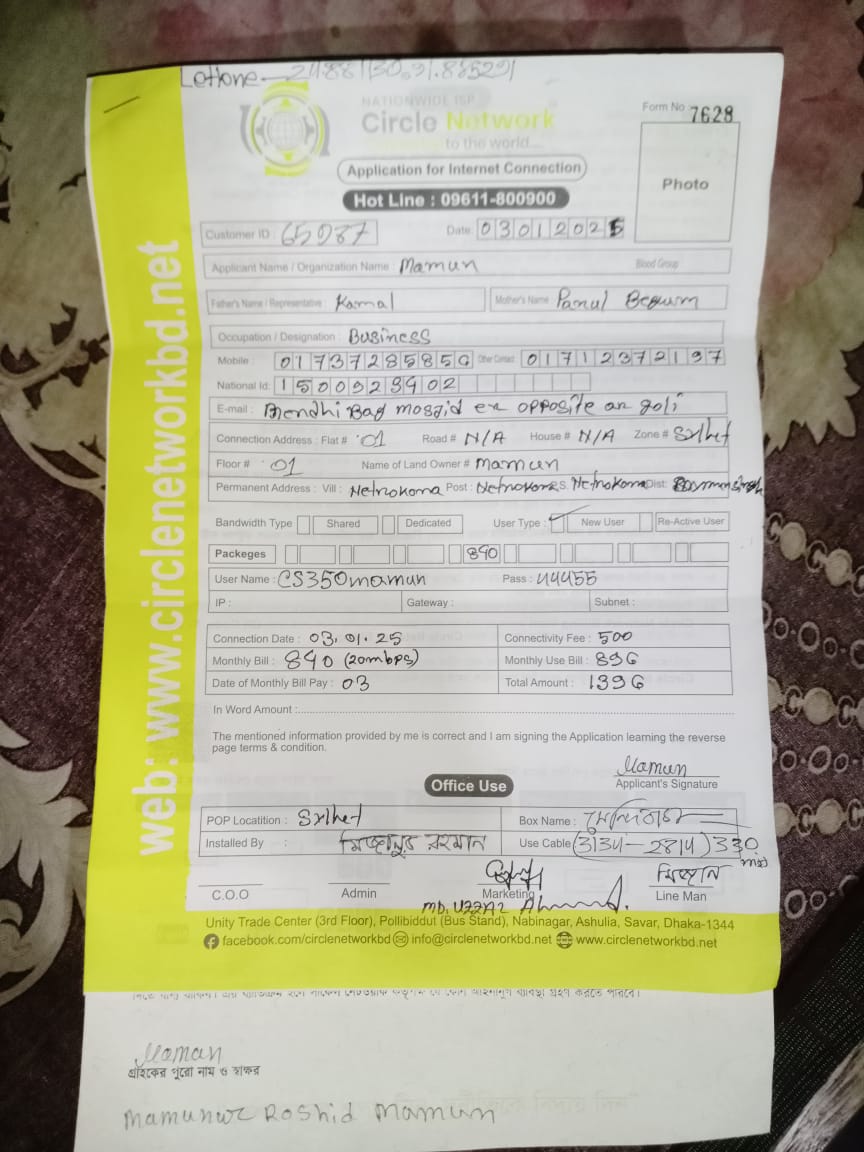 Letlone - 24.881130, 91.885291
NATIONWIDE ISP
Circle Network
to the world...
Form No : 7628
Photo
Application for Internet Connection
Hot Line : 09611-800900
Customer ID : 65987
Date: 03012025
Applicant Name / Organization Name : Mamun Blood Group
Father's Name / Representative : Kamal Mother's Name : Panul Begum
Occupation / Designation : Business
Mobile : 01737285850 Other Contact : 01712372197
National Id: 1500923902
E-mail : Mendhi Bag mosjid er opposite ar goli
Connection Address : Flat # 01 Road # N/A House # N/A Zone # Sylhet
Floor # 01 Name of Land Owner # Mamun
Permanent Address : Vill : Netrokona Post : Netrokona P.S. Netrokona Dist:
Bandwidth Type Shared Dedicated User Type : New User Re-Active User
Packeges 840
User Name : CS350mamun Pass : 44455
IP : Gateway : Subnet :
Connection Date : 03.01.25 Connectivity Fee : 500
Monthly Bill : 840 (20mbps) Monthly Use Bill : 896
Date of Monthly Bill Pay : 03 Total Amount : 1396
In Word Amount :
The mentioned information provided by me is correct and I am signing the Application learning the reverse
page terms & condition.
Mamun
Applicant's Signature
Office Use
POP Locatition : Sylhet Box Name :
Installed By : মিজানুর রহমান Use Cable (3134 - 2814) 330 mtr
মিজান
C.O.O Admin Marketing Line Man
MD. UZZAL Ahmed.
Unity Trade Center (3rd Floor), Pollibiddut (Bus Stand), Nabinagar, Ashulia, Savar, Dhaka-1344
facebook.com/circlenetworkbd info@circlenetworkbd.net www.circlenetworkbd.net
web: www.circlenetworkbd.net
Mamun
গ্রাহকের পুরো নাম ও স্বাক্ষর
Mamunur Roshid Mamun